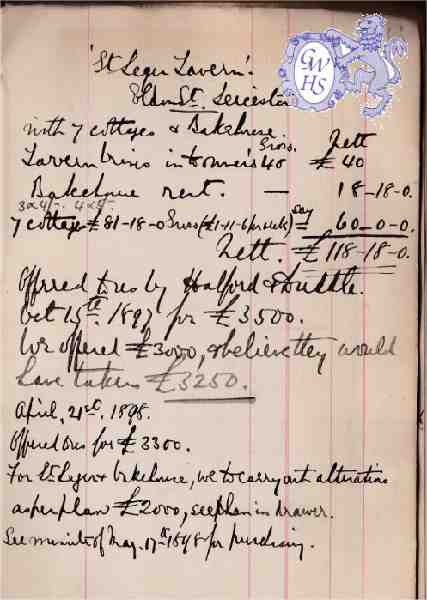 'St Leger Tavern'.
Eldon St. Leicester
GWHS
with 7 cottages & Bakehouse.
Gross. Nett
Tavern brings in to owners 40 £ 40
Bakehouse rent. — 18-18-0.
7 cottages £81-18-0 Gross (£1-11-6 per week) say 60-0-0.
Nett. £118-18-0.
Offered to us by Halford & Suttle.
Oct 15th. 1897 for £3500.
We offered £3000, & believe they would
have taken £3250.
April, 21st, 1898.
Offered to us for £3300.
For St Leger & bakehouse, we to carry out alterations
as per plan £2000, see plan in drawer.
See minute of May. 17th 1898 for purchasing.